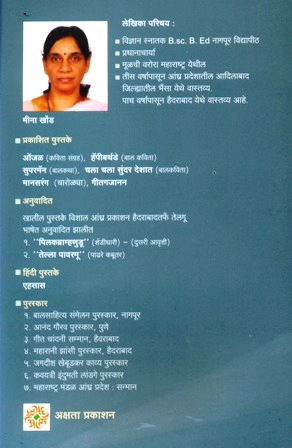 लेखिका परिचय :
विज्ञान स्नातक B.sc. B. Ed नागपूर विद्यापीठ
प्रधानाचार्या
मूळची वरोरा महाराष्ट्र येथील
तीस वर्षापासून आंध्र प्रदेशातील आदिलाबाद
जिल्ह्यातील भैंसा येथे वास्तव्य.
पाच वर्षापासून हैदराबाद येथे वास्तव्य आहे.
मीना खोंड
प्रकाशित पुस्तके
ओंजळ (कविता संग्रह), हॅपीबर्थडे (बाल कविता)
सुपरमॅन (बालकथा), चला चला सुंदर देशात (बालकविता)
मानसरंग (चारोळ्या), गीतगजानन
अनुवादित
खालील पुस्तके विशाल आंध्र प्रकाशन हैदराबादतर्फे तेलगू
भाषेत अनुवादित झालीत
१. "पिलकब्राम्हणुडू" (शेंडीधारी) – (दुसरी आवृत्ती)
२. "तेल्ला पावरमू" (पांढरे कबूतर)
हिंदी पुस्तके
एहसास
पुरस्कार
१. बालसाहित्य संमेलन पुरस्कार, नागपूर
२. आनंद गौरव पुरस्कार, पुणे
३. गीत चांदनी सम्मान, हैदराबाद
४. महारानी झांसी पुरस्कार, हैदराबाद
५. जगदीश खेबूडकर काव्य पुरस्कार
६. कवयत्री इंदुमती लांडगे पुरस्कार
७. महाराष्ट्र मंडळ आंध्र प्रदेश : सन्मान
अक्षता प्रकाशन